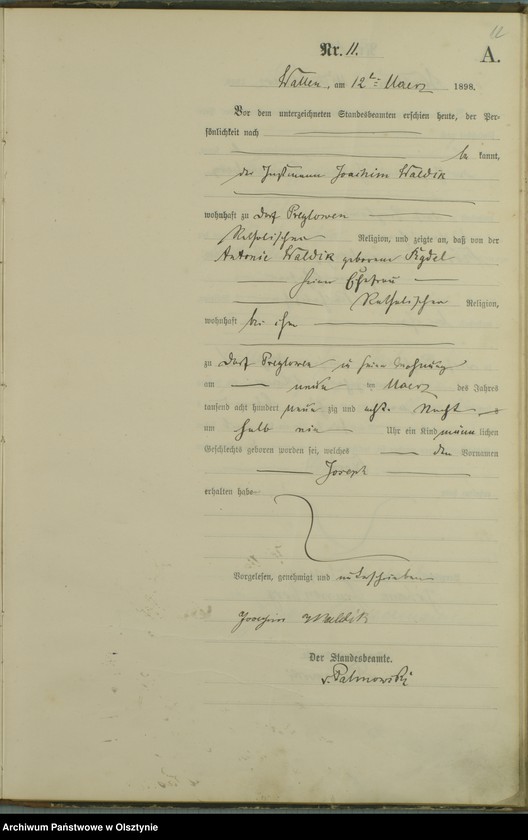 11
Nr. 11.
A.
Wallen, am 12ten Maerz 1898.
Vor dem unterzeichneten Standesbeamten erschien heute, der Per-
sönlichkeit nach
be kannt,
der Instmann Joachim Waldik
wohnhaft zu Dorf
Katholischer Religion, und zeigte an, daß von der
Antonie Waldik geborene
seiner Ehefrau
Katholischer Religion,
wohnhaft bei ihm
zu Dorf in seiner Wohnung
am neun ten Maerz des Jahres
tausend acht hundert neun zig und acht Nachts
um halb ein Uhr ein Kind männ lichen
Geschlechts geboren worden sei, welches den Vornamen
Joseph
erhalten habe
Vorgelesen, genehmigt und unterschrieben
Joachim Waldik
Der Standesbeamte.
v. Palmowski
Archiwum Państwowe w Olsztynie